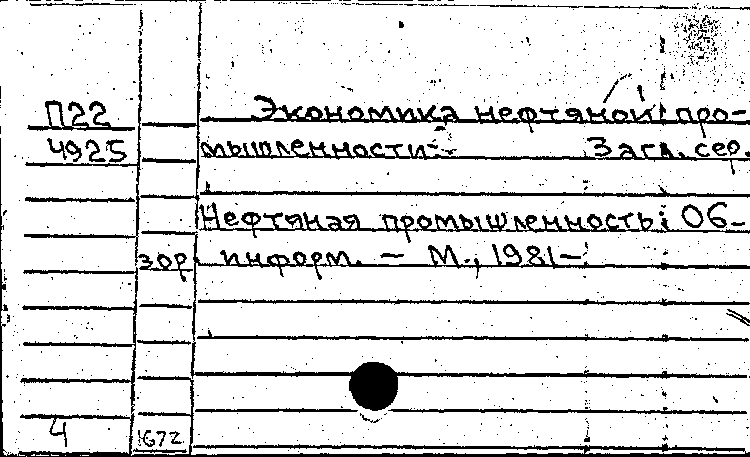 П22 Экономика нефтяной про-
4925 мышленности. Загл. сер.
Нефтяная промышленность: Об-
зор. информ. — М., 1981—
4 1672